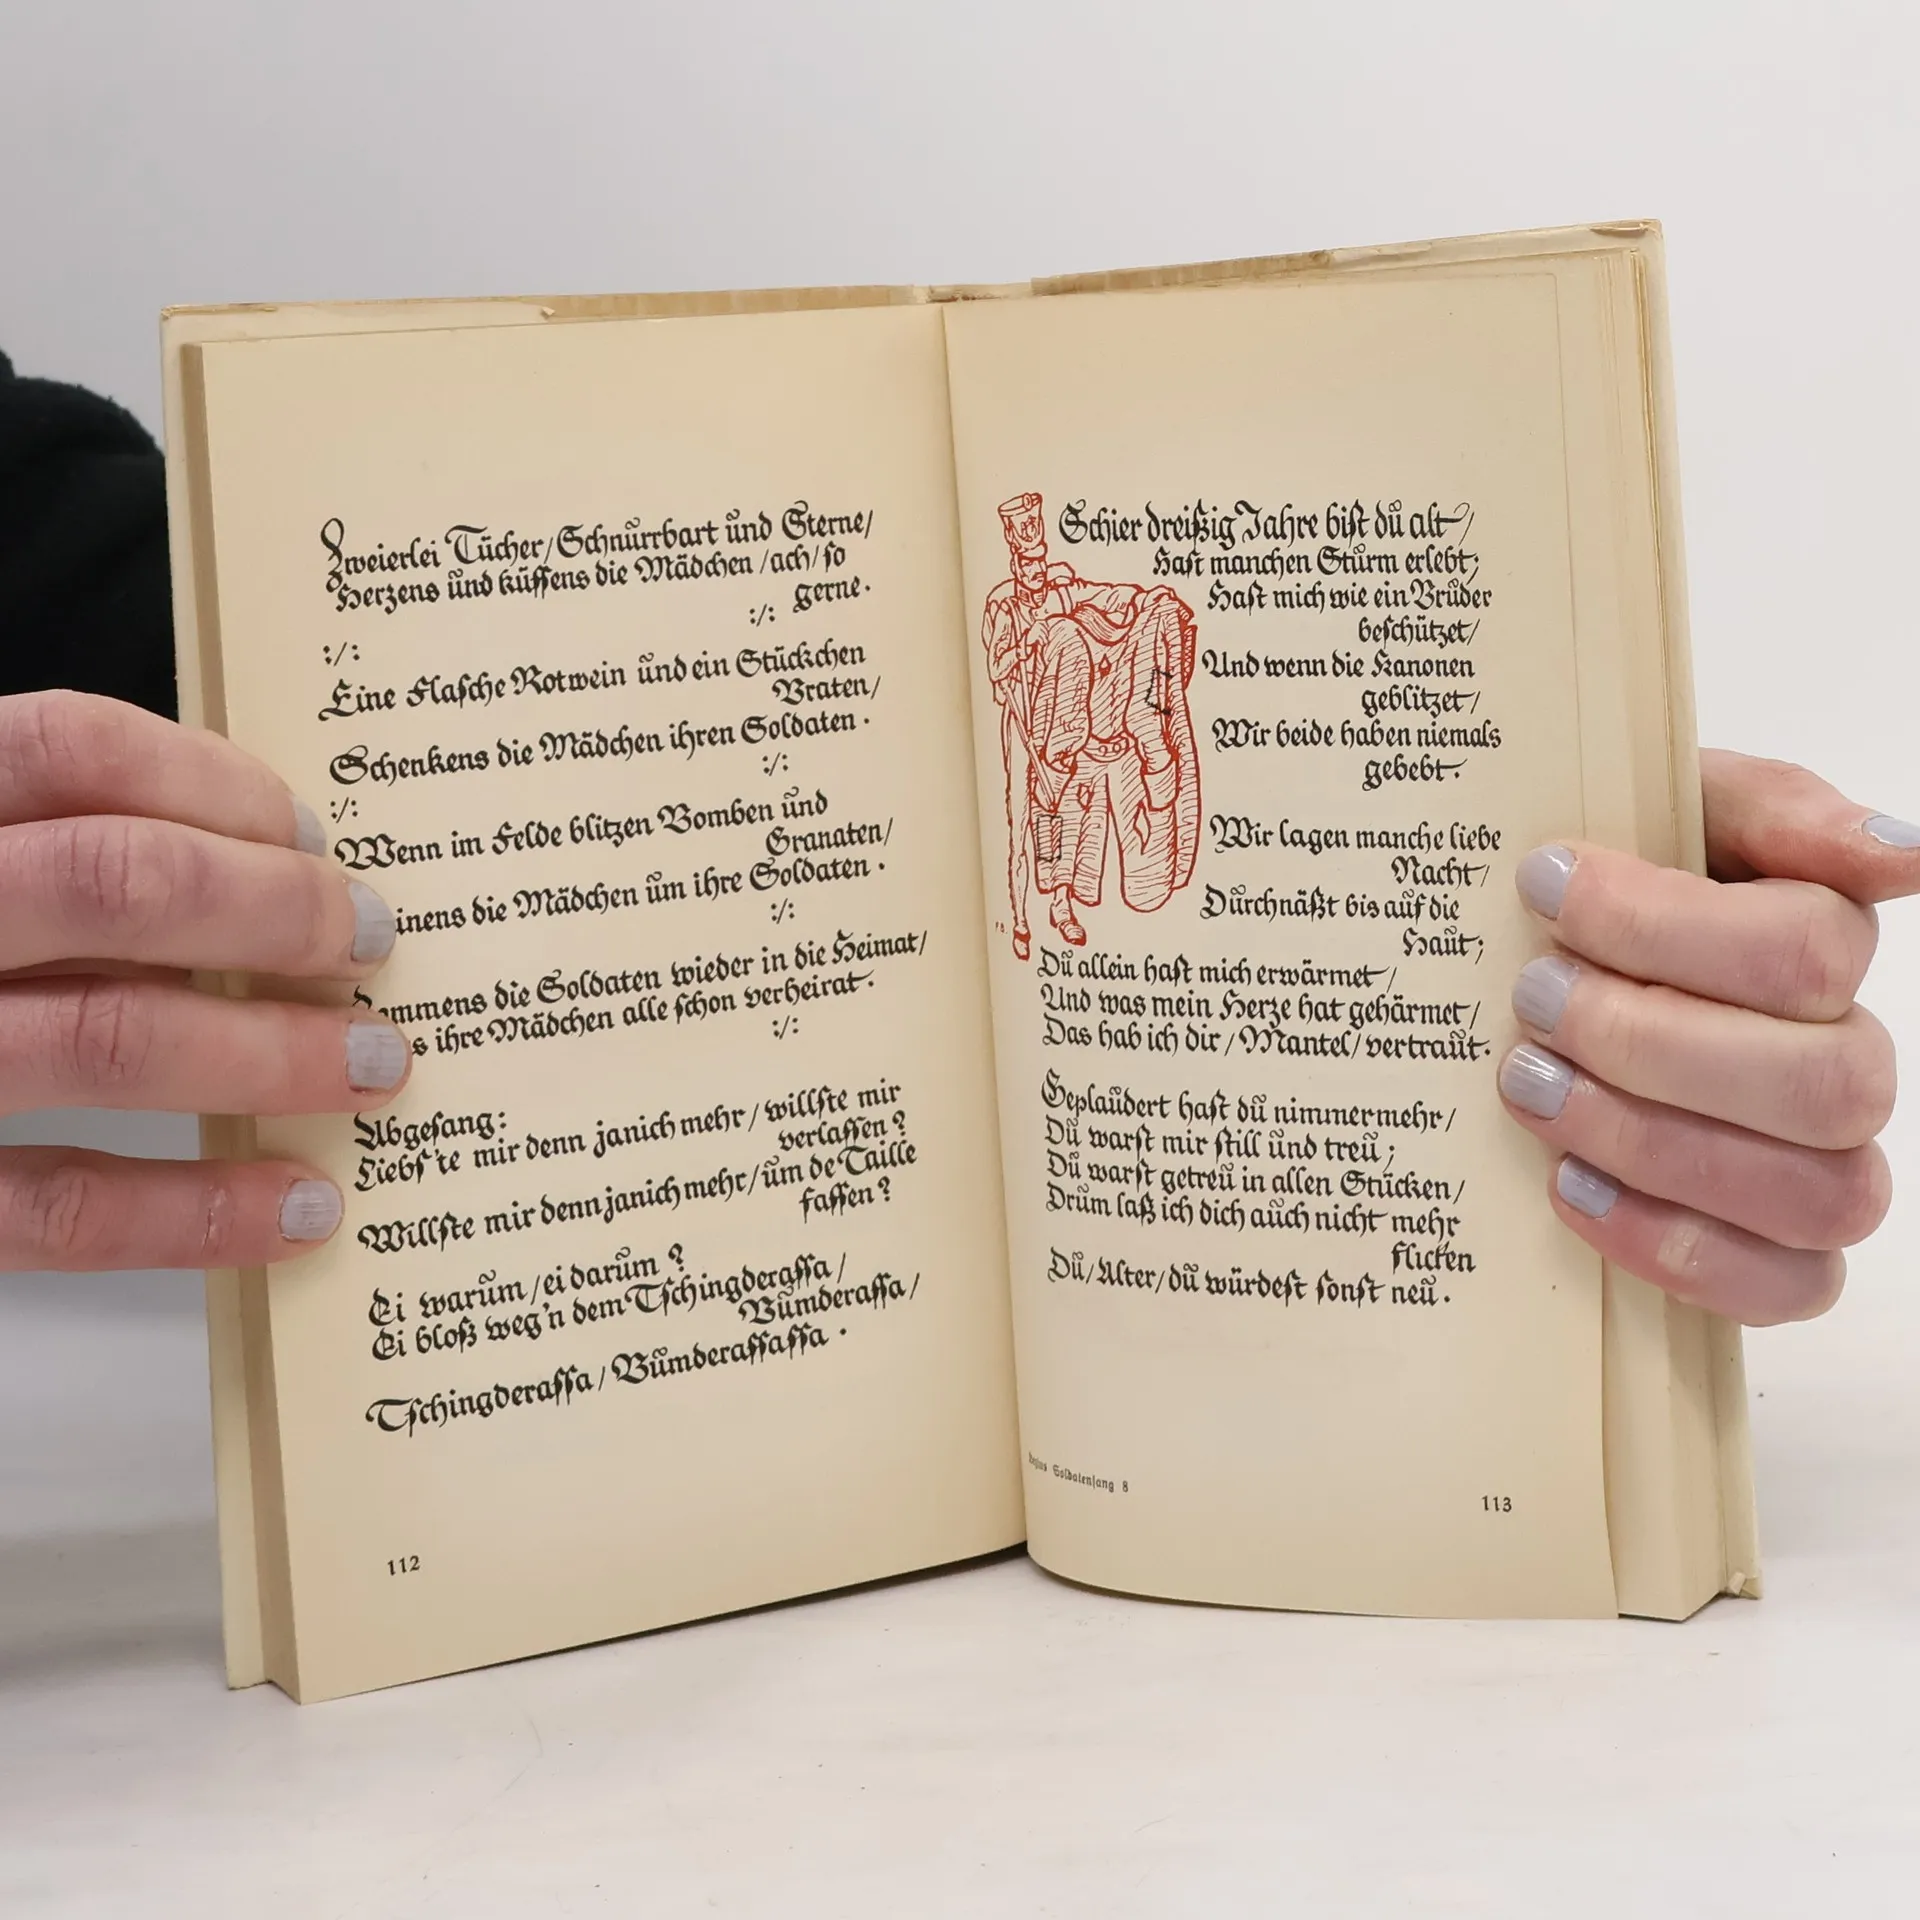 Zweierlei Tücher/Schnurrbart und Sterne/
Herzens und küssens die Mädchen/ach/so
gerne.
:/:
:/:
Eine Flasche Rotwein und ein Stückchen
Braten/
Schenkens die Mädchen ihren Soldaten.
:/:
:/:
Wenn im Felde blitzen Bomben und
Granaten/
die Mädchen um ihre Soldaten.
:/:
die Soldaten wieder in die Heimat/
ihre Mädchen alle schon verheirat.
:/:
Abgesang:
Liebs'te mir denn janich mehr/willste mir
verlassen?
Willste mir denn janich mehr/um de Taille
fassen?
Ei warum/ei darum?
Ei bloß weg'n dem Tschingderassa/
Bumderassa/
Tschingderassa/Bumderassassa.
112
Schier dreißig Jahre bist du alt/
Hast manchen Sturm erlebt;
Hast mich wie ein Bruder
beschützet/
Und wenn die Kanonen
geblitzet/
Wir beide haben niemals
gebebt.
Wir lagen manche liebe
Nacht/
Durchnäßt bis auf die
Haut;
Du allein hast mich erwärmet/
Und was mein Herze hat gehärmet/
Das hab ich dir/Mantel/vertraut.
Geplaudert hast du nimmermehr/
Du warst mir still und treu;
Du warst getreu in allen Stücken/
Drum laß ich dich auch nicht mehr
flicken
Du/Alter/du würdest sonst neu.
Soldatensang 8
113